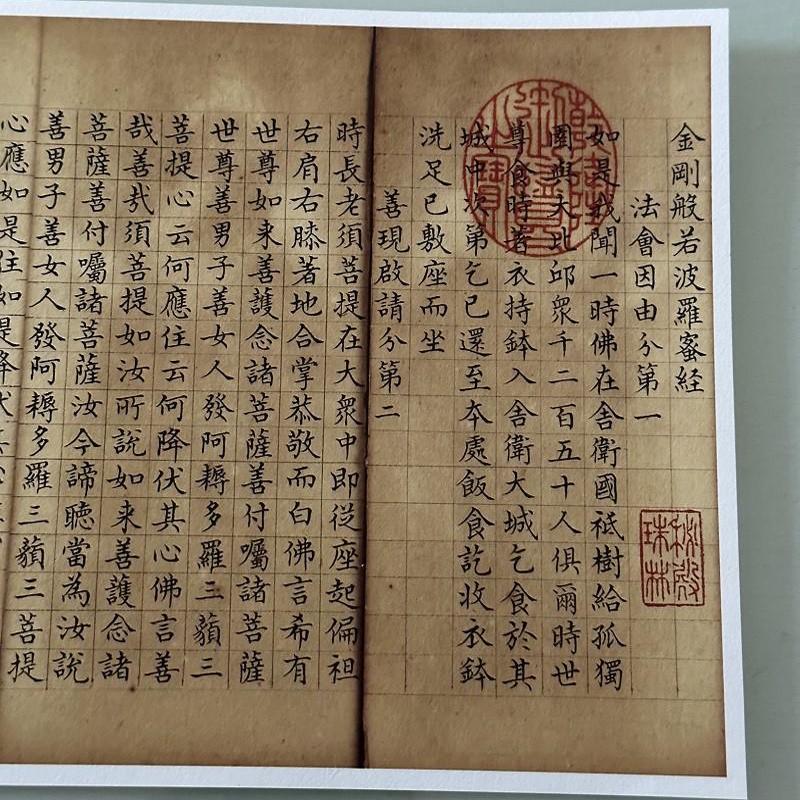 金剛般若波羅蜜経
法會因由分第一
如是我聞一時佛在舍衛國祇樹給孤獨
園與大比邱衆千二百五十人俱爾時世
尊食時著衣持鉢入舍衛大城乞食於其
城中次第乞已還至本處飯食訖收衣鉢
洗足已敷座而坐
善現啟請分第二
時長老須菩提在大衆中即從座起偏袒
右肩右膝著地合掌恭敬而白佛言希有
世尊如来善護念諸菩薩善付囑諸菩薩
世尊善男子善女人發阿耨多羅三藐三
菩提心云何應住云何降伏其心佛言善
哉善哉須菩提如汝所說如来善護念諸
菩薩善付囑諸菩薩汝今諦聽當為汝說
善男子善女人發阿耨多羅三藐三菩提
心應如是住如是降伏其心
秘殿珠林